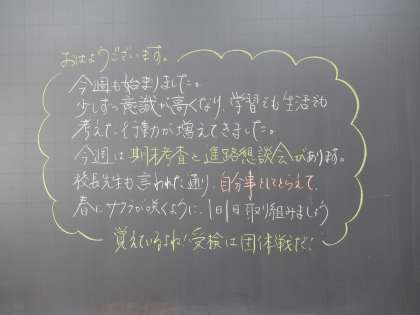 おはようございます。
今週も始まりました。
少しずつ意識が高くなり、学習でも生活でも
考えた行動が増えてきました。
今週は期末考査と進路懇談会があります。
校長先生も言われた通り、自分事としてとらえて、
春にサクラが咲くように、1日1日取り組みましょう
覚えているよね!受検は団体戦だ!